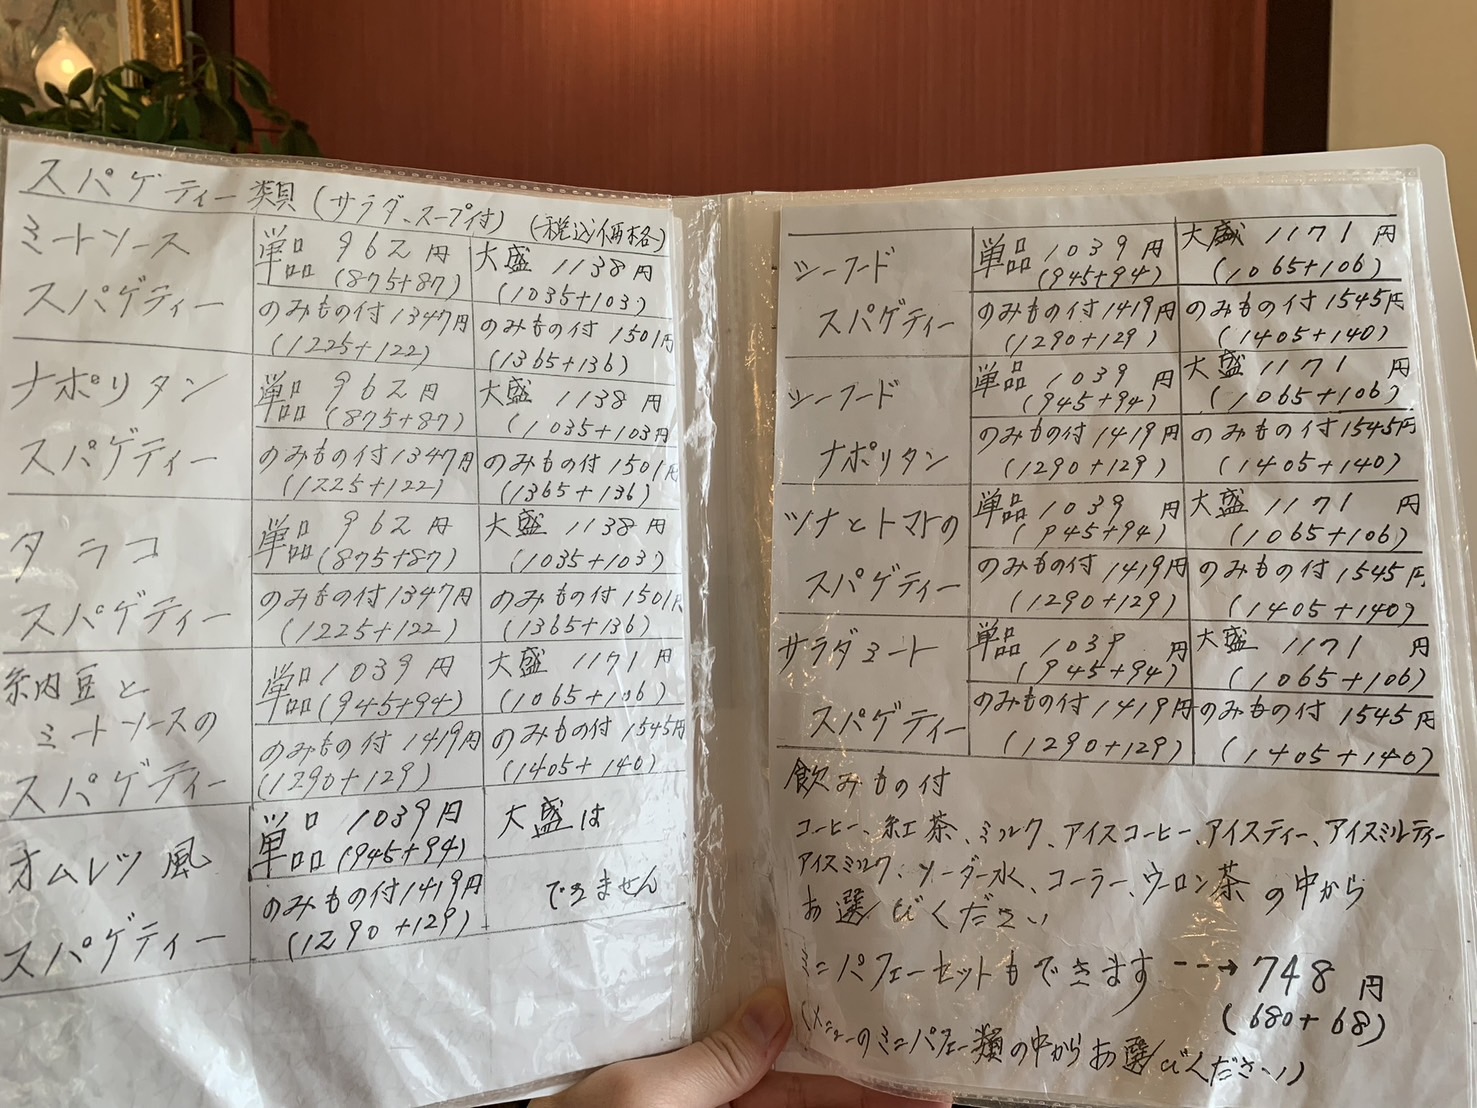 スパゲティー類(サラダ、スープ付) (税込価格)
ミートソース
スパゲティー
単品 962円
(875+87)
大盛 1138円
(1035+103)
のみもの付1347円
(1225+122)
のみもの付1501円
(1365+136)
ナポリタン
スパゲティー
単品 962円
(875+87)
大盛 1138円
(1035+103円
のみもの付1347円
(1225+122)
のみもの付1501円
(1365+136)
タラコ
スパゲティー
単品 962円
(875+87)
大盛 1138円
(1035+103)
のみもの付1347円
(1225+122)
のみもの付1501円
(1365+136)
納豆と
ミートソースの
スパゲティー
単品 1039円
(945+94)
大盛 1171円
(1065+106)
のみもの付1419円
(1290+129)
のみもの付1545円
(1405+140)
オムレツ風
スパゲティー
単品 1039円
(945+94)
大盛は
できません
のみもの付1419円
(1290+129)
シーフード
スパゲティー
単品 1039円
(945+94)
大盛 1171円
(1065+106)
のみもの付1419円
(1290+129)
のみもの付1545円
(1405+140)
シーフード
ナポリタン
単品 1039円
(945+94)
大盛 1171円
(1065+106)
のみもの付1419円
(1290+129)
のみもの付1545円
(1405+140)
ツナとトマトの
スパゲティー
単品 1039円
(945+94)
大盛 1171円
(1065+106)
のみもの付1419円
(1290+129)
のみもの付1545円
(1405+140)
サラダミート
スパゲティー
単品 1039円
(945+94)
大盛 1171円
(1065+106)
のみもの付1419円
(1290+129)
のみもの付1545円
(1405+140)
飲みもの付
コーヒー、紅茶、ミルク、アイスコーヒー、アイスティー、アイスミルティー
アイスミルク、ソーダー水、コーラー、ウーロン茶の中から
お選びください
ミニパフェーセットもできます --→ 748円
(680+68)
(メニューのミニパフェー類の中からお選びください)